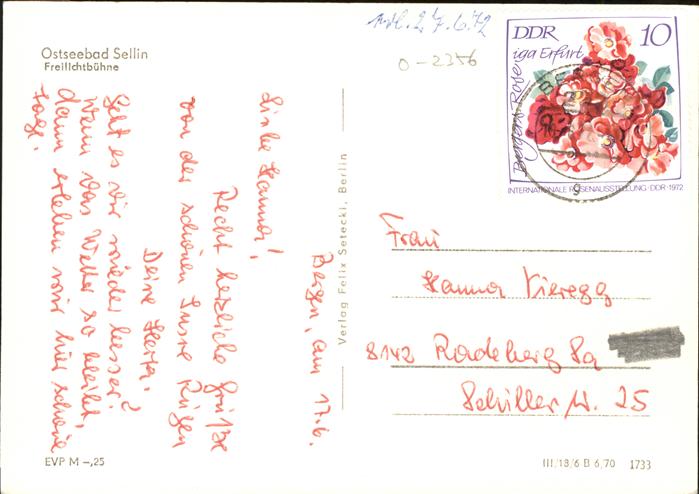 Ostseebad Sellin
Freilichtbühne
27.6.72
0-2356
DDR
10
iga Erfurt
Bergers Rose
INTERNATIONALE ROSENAUSSTELLUNG · DDR · 1972
BE
g
Bergen, am 17.6.
Liebe Hanna!
Recht herzliche Grüße
von der schönen Insel Rügen
Deine Herta.
Geht es dir wieder besser?
Wenn das Wetter so bleibt,
dann erleben wir hier schöne
Tage.
Verlag Felix Setecki, Berlin
Frau
Hanna Vieregg
8142 Radeberg Sa
Schiller
25
EVP M -,25
III/18/6 B 6/70 1733